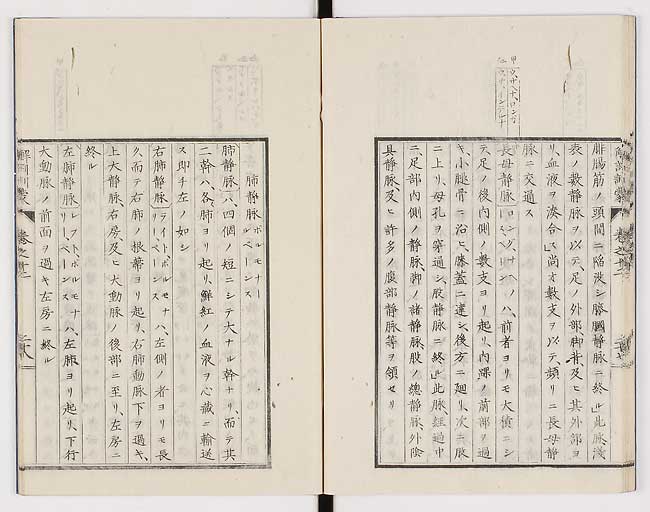 腓腸筋ノ頭間ニ陥没シ膝膕静脉ニ終ル此脉淺
表ノ數静脉ヲ以テ、足ノ外部、脚背及ヒ其外部ヨ
リ、血液ヲ湊合シ尚オ數支ヲ以テ、頻リニ長母静
脉ニ交通ス
ハ、前者ヨリモ大幀ニシ
テ足ノ後内側ノ數支ヨリ起リ、内踝ノ前部ヲ過
キ、小腿骨ニ沿ヒ、膝蓋ニ達シ、後方ニ廻リ、次ニ股
ニ上リ、母孔ヲ穿通シ、股静脉ニ終ル此脉經過中
ニ足部内側ノ静脉、脚ノ諸静脉、股ノ總静脉、外陰
具静脉、及ヒ許多ノ腹部静脉等ヲ領セリ
肺静脉 ポルモナー ベーンス
肺静脉ハ、四個ノ短ニシテ大ナル幹ナリ、而テ其
二幹ハ、各肺ヨリ起リ、鮮紅ノ血液ヲ心臓ニ輸送
ス即チ左ノ如シ
右肺静脉 ライトポルモナリーベーンス ハ、左側ノ者ヨリモ長
ク、而テ右肺ノ根帶ヨリ起リ、右肺動脉下ヲ過キ、
上大静脉、右房、及ヒ大動脉ノ後部ニ至リ、左房ニ
終ル
左肺静脉 レフトポルモナリーベーンス ハ、左肺ヨリ起リ、下行
大動脉ノ前面ヲ過キ左房ニ終ル